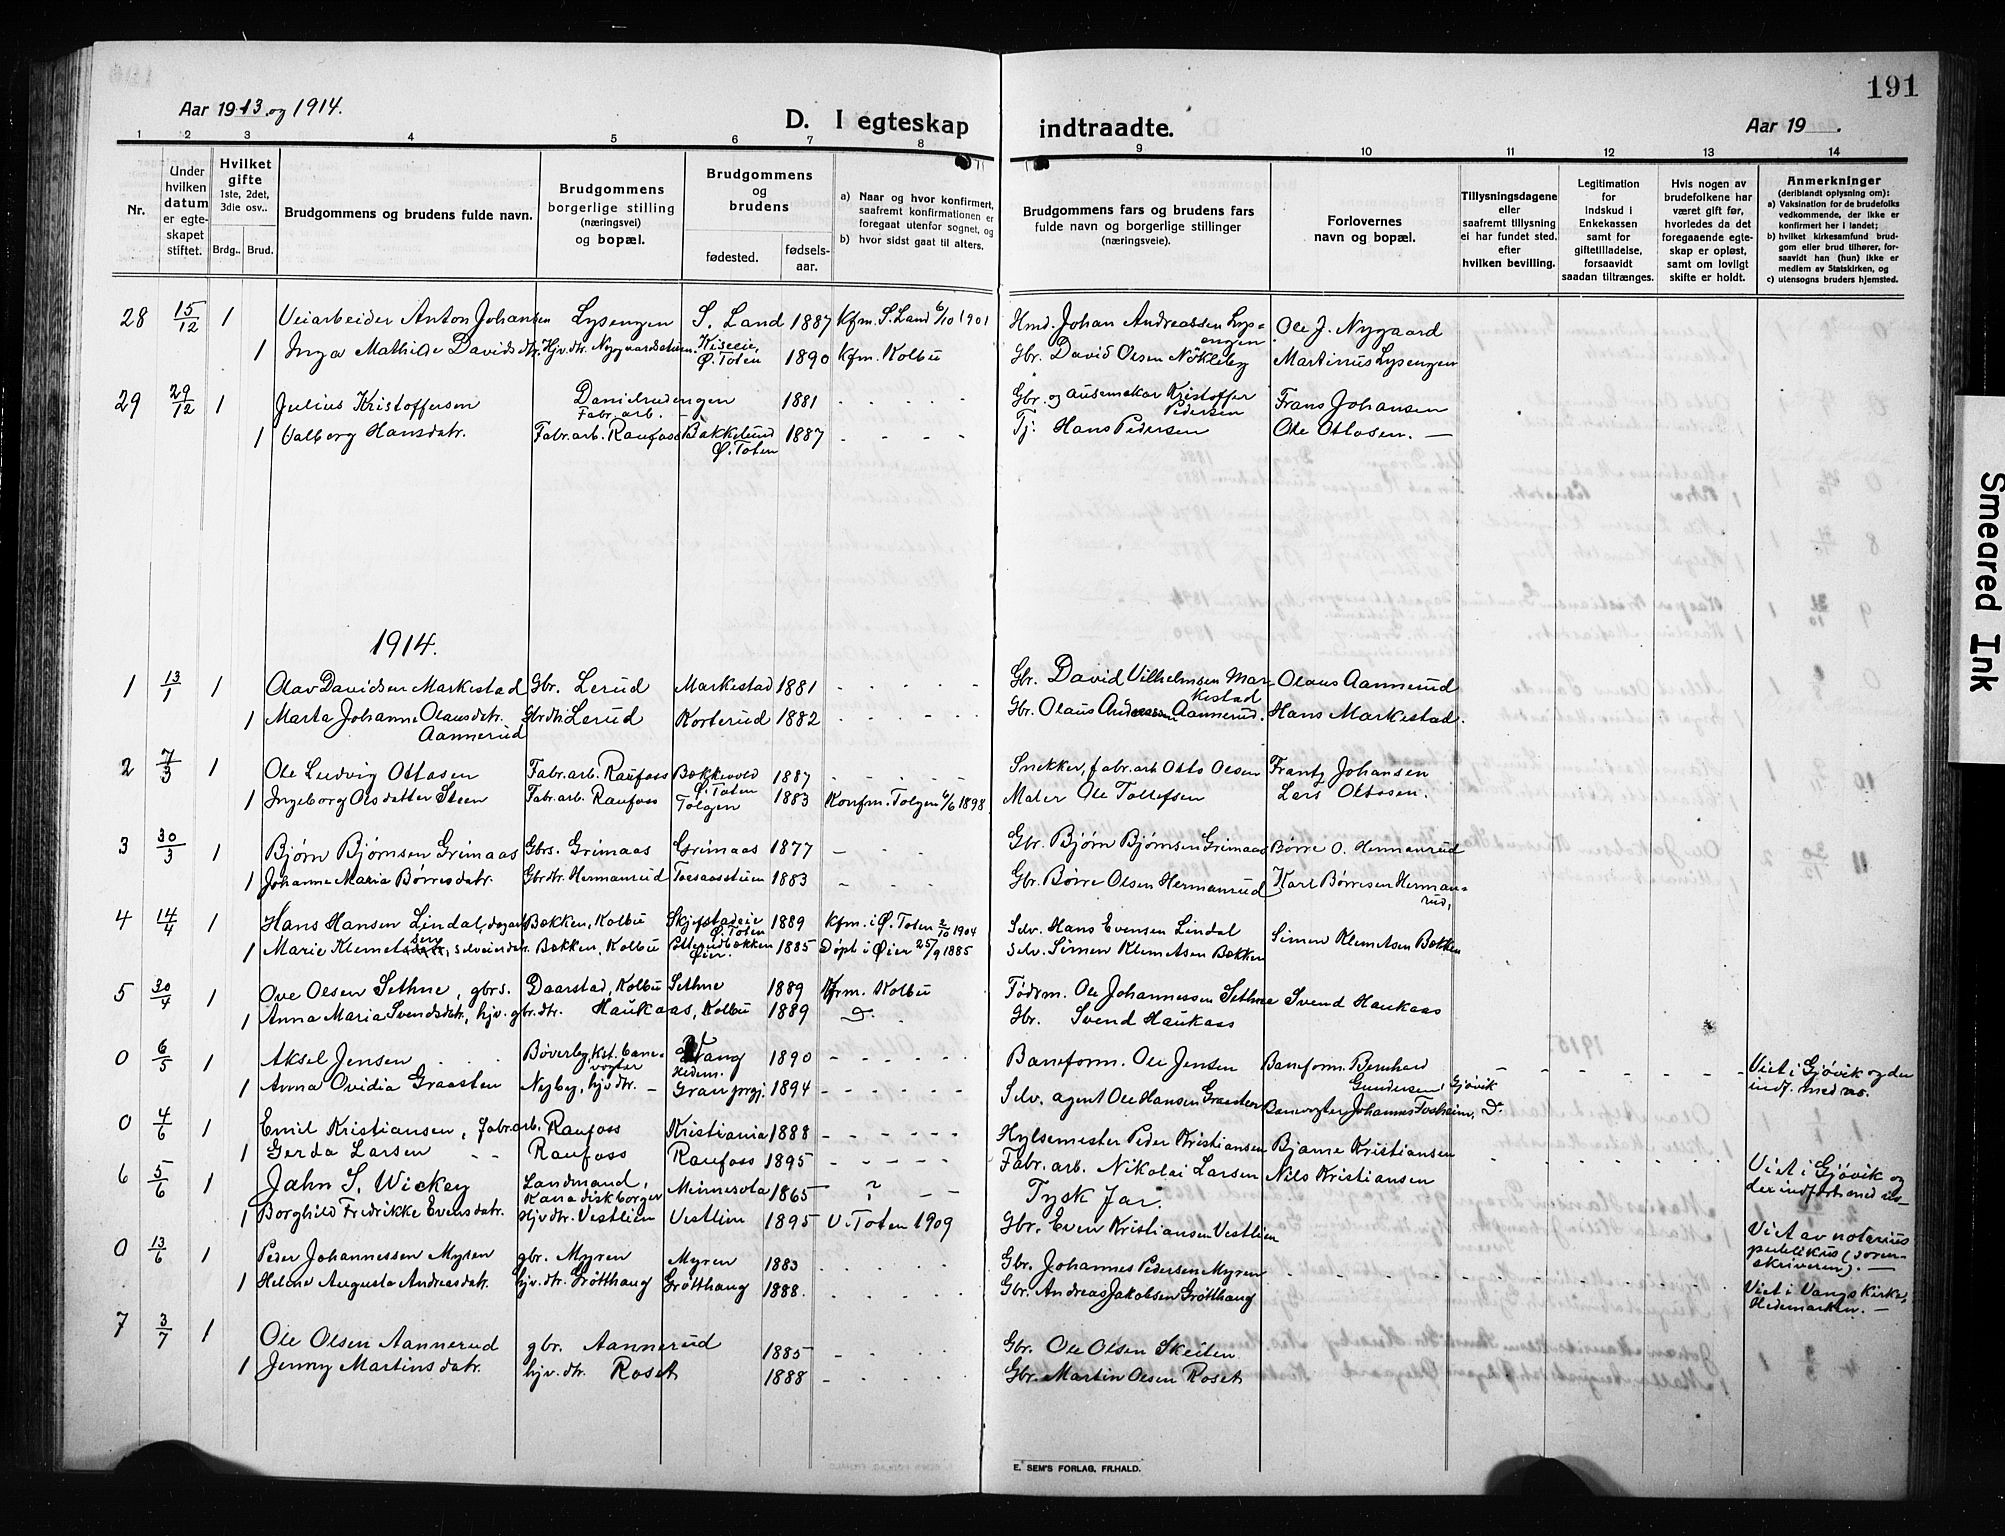 191
Aar 1913 og 1914.
D. I egteskap indtraadte.
Aar 19 .
1 2 3 4 5 6 7 8 9 10 11 12 13 14
Nr.
Under hvilken datum er egteskapet stiftet.
Hvilket gifte 1ste, 2det, 3die osv..
Brdg.. Brud.
Brudgommens og brudens fulde navn.
Brudgommens borgerlige stilling (næringsvei) og bopæl.
Brudgommens og brudens
fødested. fødselsaar.
a) Naar og hvor konfirmert, saafremt konfirmationen er foregaat utenfor sognet, og
b) hvor sidst gaat til alters.
Brudgommens fars og brudens fars fulde navn og borgerlige stillinger (næringsveie).
Forlovernes navn og bopæl.
Tillysningsdagene eller saafremt tillysning ei har fundet sted. efter hvilken bevilling.
Legitimation for indskud i Enkekassen samt for giftetilladelse, forsaavidt saadan tiltrænges.
Hvis nogen av brudefolkene har været gift før, hvorledes da det foregaaende egteskap er opløst, samt om lovligt skifte er holdt.
Anmerkninger (deriblandt oplysning om):
a) Vaksination for de brudefolks vedkommende, der ikke er konfirmert her i landet;
b) hvilket kirkesamfund brudgom eller brud tilhører, forsaavidt han (hun) ikke er medlem av Statskirken, og
c) utensogns bruders hjemsted.
28 15/12 1 Veiarbeider Anton Johansen Lysengen S. Land 1887 Kfm. S. Land 6/10 1901 Hmd. Johan Andreassen Lysengen Ole J. Nygaard
1 Inga Mathilde Davidsdtr. Hjv. dtr. Nygaardsstuen. Ø. Toten 1890 Kfm. Kolbu Gbr. David Olsen Nökleby Martinus Lysengen
29 29/12 1 Julius Kristoffersen Danielrudengen Fabr. arb. 1881 Gbr. og Kristoffer Pedersen Frans Johansen
1 Valborg Hansdatr. Fabr. arb. Raufoss Bakkelund Ø. Toten 1887 Tj. Hans Pedersen Ole Ottosen.
1914.
1 13/1 1 Olav Davidsen Markestad Gbr. Lerud Markestad 1881 Gbr. David Vilhelmsen Markestad Olaus Aannerud
1 Marta Johanne Olausdatr. Aannerud Gbrdtr. Lerud Korterud 1882 Gbr. Olaus Andersen Aannerud. Hans Markestad.
2 7/3 1 Ole Ludvig Ottosen Fabr. arb. Raufoss Bækkevold Ø. Toten 1887 Snekker, fabr. arb. Otto Olsen Frantz Johansen
1 Ingeborg Olsdatter Steen Fabr. arb. Raufoss Tolgen 1883 Konfm. Tolgen 6/6 1898 Maler Ole Tollefsen Lars Ottosen.
3 30/3 1 Bjørn Bjørnsen Grimaas Gbrs. Grimaas Grimaas 1877 Gbr. Bjørn Bjørnsen Grimaas Børre O. Hermanrud
1 Johanne Maria Børresdatr. Gbrdtr. Hermanrud 1883 Gbr. Børre Olsen Hermanrud Karl Børresen Hermanrud,
4 14/4 1 Hans Hansen Lindal, Bakken, Kolbu Skjefstadeie Ø. Toten 1889 Kfm. i Ø. Toten 2/10 1904 Selv. Hans Evensen Lindal Simen Klemetsen Bakken
1 Marie Klemetsen, selveierdatr. Bakken, Kolbu Øier. 1885 Døpt i Øier 25/9 1885 Selv. Simen Klemetsen Bakken
5 30/4 1 Ove Olsen Sethne, gbrs. Daarstad, Kolbu Sethne 1889 Kfrm. Kolbu Fødrm. Ole Johannessen Sethne Svend Haukaas
1 Anna Maria Svendsdatr., hjv. gbr. dtr. Haukaas, Kolbu 1889 Do. Gbr. Svend Haukaas
0 6/5 1 Aksel Jensen Bøverby, Kst. banevogter Vang Hedm. 1890 Baneform. Ole Jensen Baneform. Bernhard Gundersen, Gjøvik Viet i Gjøvik og der indf. med no.
1 Anna Ovidia Graasten Nyby, hjv. dtr. Gran prgj. 1894 Selv. agent Ole Hansen Graasten Banevogter Johannes Fosheim, Do.
0 4/6 1 Emil Kristiansen, fabr. arb. Raufoss Kristiania 1888 Hylsemester Peder Kristiansen Bjarne Kristiansen
1 Gerda Larsen Raufoss Raufoss 1895 Fabr. arb. Nikolai Larsen Nils Kristiansen Viet i Gjøvik og der indført med no.
6 5/6 1 John S. Wickey Landmand, Kanadisk borger Minnesota 1865 ? Tysk far.
1 Borghild Fredrikke Evensdatr. Hjv. dtr. Vestlien Vestlien 1895 V. Toten 1909 Gbr. Even Kristiansen Vestlien Viet av notarius publikus (sorenskriveren).
0 13/6 1 Peder Johannessen Myren gbr. Myren Myren 1883 Gbr. Johannes Pedersen Myren
1 Helene Augusta Andreasdatr. hjv. dtr. Grøtthaug Grøtthaug 1888. Gbr. Andreas Jakobsen Grøtthaug Viet i Vangs kirke, Hedemarken.
7 3/7 1 Ole Olsen Aannerud gbr. Aannerud 1885 Gbr. Ole Olsen Skeiten
1 Jenny Martinsdatr. hjv. dtr. Roset 1888 Gbr. Martin Olsen Roset
E. SEM'S FORLAG, FR.HALD.
Smeared Ink